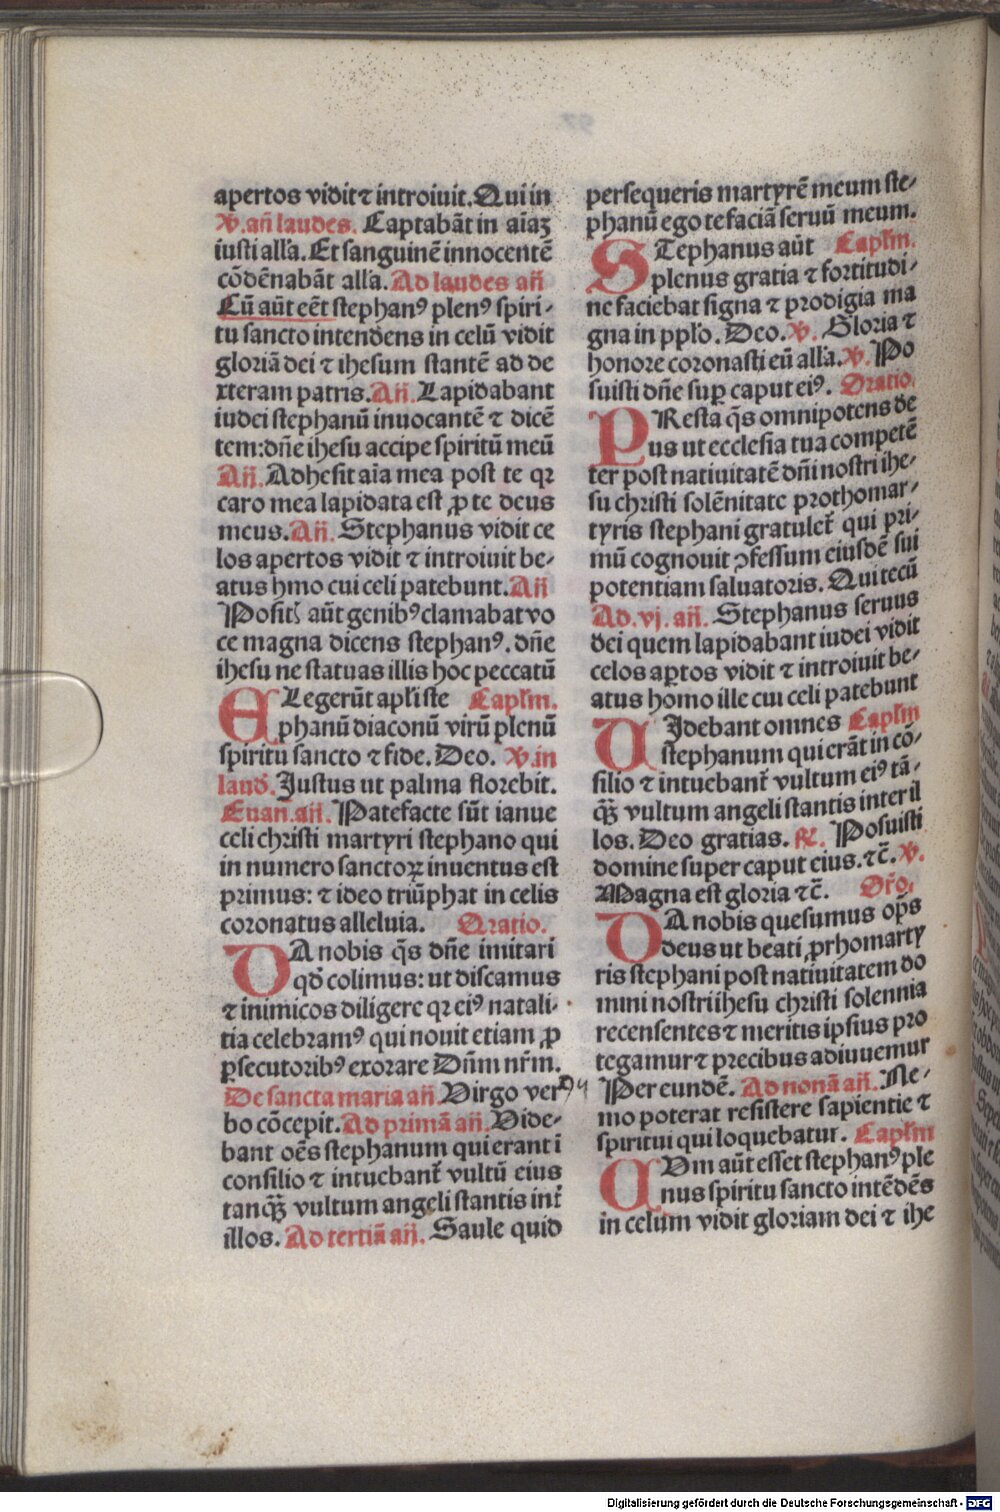 apertos vidit ⁊ introiuit. Qui in
V̓. an̄ laudes. Captabāt in aīaꝫ
iusti all'a. Et sanguinē innocentē
cōdēnabāt all'a. Ad laudes an̄
Cū aūt eēt stephanꝰ plenꝰ spiri-
tu sancto intendens in celū vidit
gloriā dei ⁊ ihesum stantē ad de
xteram patris. An̄. Lapidabant
iudei stephanū inuocantē ⁊ dicē
tem: dn̄e ihesu accipe spiritū meū
An̄. Adhesit aīa mea post te qꝛ
caro mea lapidata est ꝓ te deus
meus. An̄. Stephanus vidit ce
los apertos vidit ⁊ introiuit be-
atus hmo cui celi patebunt. An̄
Positꝭ aūt genibꝰ clamabat vo
ce magna dicens stephanꝰ. dn̄e
ihesu ne statuas illis hoc peccatū
ELegerūt apl'i ste Capl'm.
phanū diaconū virū plenū
spiritu sancto ⁊ fide. Deo. V̓. in
laud̓. Justus ut palma florebit.
Euan. an̄. Patefacte sūt ianue
celi christi martyri stephano qui
in numero sanctoꝝ inuentus est
primus: ⁊ ideo triūphat in celis
coronatus alleluia. Oratio.
DA nobis q̄s dn̄e imitari
qd̓ colimus: ut discamus
⁊ inimicos diligere qꝛ eiꝰ natali-
tia celebramꝰ qui nouit etiam ꝓ
ꝑsecutoribꝰ exorare Dn̄m nr̄m.
De sancta maria an̄. Virgo ver
bo cōcepit. Ad primā an̄. Vide-
bant oēs stephanum qui erant ī
consilio ⁊ intuebant̄ vultū eius
tanqꝫ̄ vultum angeli stantis int̄
illos. Ad tertiā an̄. Saule quid
persequeris martyrē meum ste-
phanū ego te faciā seruū meum.
STephanus aūt Capl'm.
plenus gratia ⁊ fortitudi-
ne faciebat signa ⁊ prodigia ma
gna in ppl'o. Deo. V̓. Gloria ⁊
honore coronasti eū all'a. V̓. Po
suisti dn̄e suꝑ caput eiꝰ. Oratio.
PResta q̄s omnipotens de
us ut ecclesia tua competē
ter post natiuitatē dn̄i nostri ihe-
su christi solēnitate prothomar-
tyris stephani gratulet̄ qui pri-
mū cognouit ꝯfessum eiusdē sui
potentiam saluatoris. Qui tecū
Ad. vj. an̄. Stephanus seruus
dei quem lapidabant iudei vidit
celos aꝑtos vidit ⁊ introiuit be-
atus homo ille cui celi patebunt
VJdebant omnes Capl'm
stephanum qui erāt in cō-
silio ⁊ intuebant̄ vultum eiꝰ tā-
qꝫ̄ vultum angeli stantis inter il
los. Deo gratias. ℟. Posuisti
domine super caput eius. ⁊c̄. V̓.
Magna est gloria ⁊c̄. Or̄o.
DA nobis quesumus op̄s
deus ut beati ꝓrhomarty
ris stephani post natiuitatem do
mini nostri ihesu christi solennia
recensentes ⁊ meritis ipsius pro
tegamur ⁊ precibus adiuuemur
Per eundē. Ad nonā an̄. Ne-
mo poterat resistere sapientie ⁊
spiritui qui loquebatur. Capl'm
CVm aūt esset stephanꝰ ple
nus spiritu sancto intēdēs
in celum vidit gloriam dei ⁊ ihe
Digitalisierung gefördert durch die Deutsche Forschungsgemeinschaft - DFG